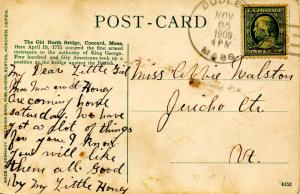 POST-CARD
The Old North Bridge, Concord, Mass.
Here April 19, 1775 occurred the first armed
resistance to the authority of King George.
Four hundred and fifty Americans took up a
position at the bridge against the British.
DUDLEY
NOV
1909
4 PM
MASS.
My Dear Little Girl
You Mama and Honey
are coming home
Saturday. We have
got a lot of things
for you. I know
you will like
them all Good
by My Little Honey
Miss Abbie Walston
Jericho Ctr
Vt.